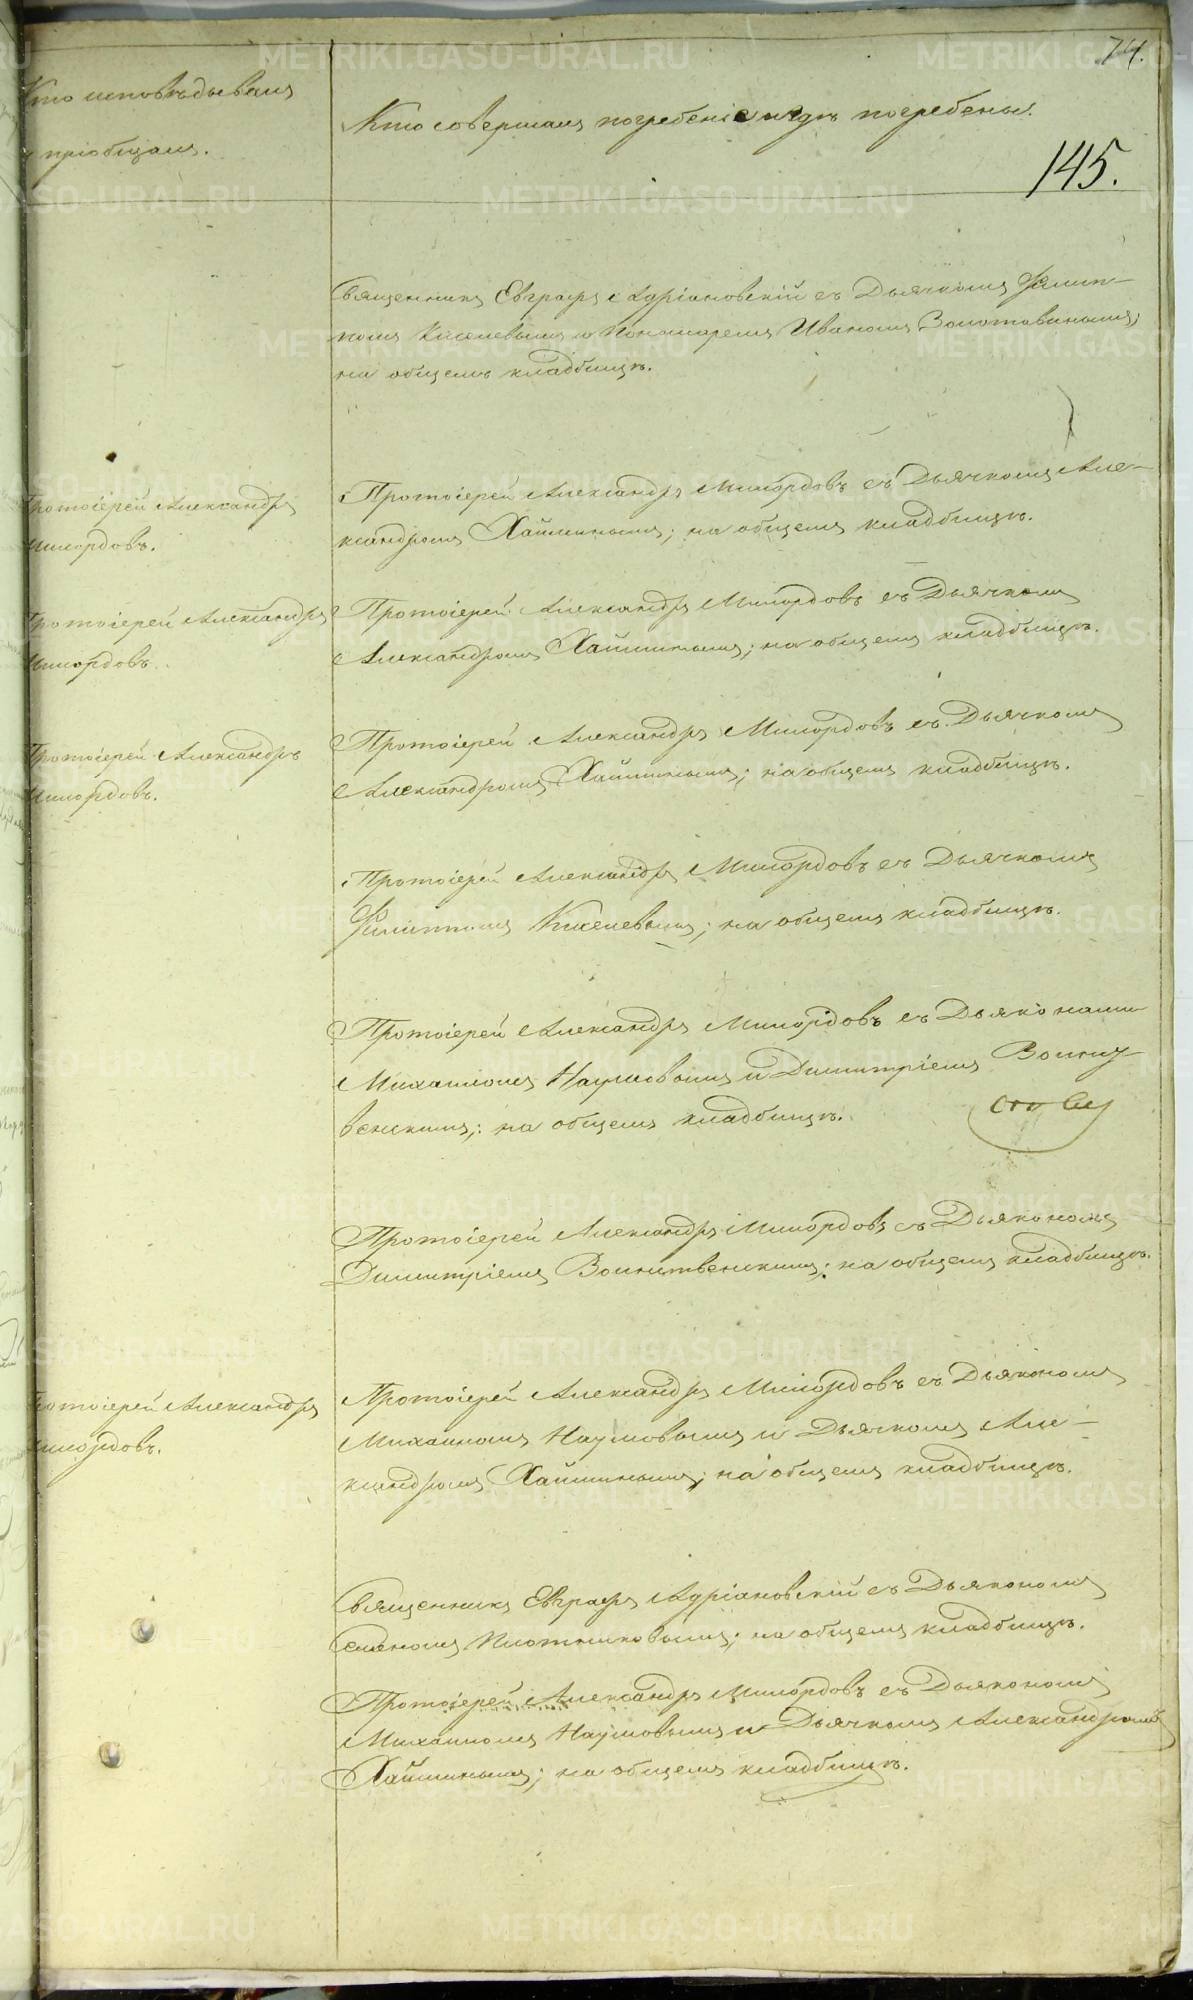 74.
Кто исповѣдывалъ
и пріобщалъ.
Кто совершалъ погребеніе и гдѣ погребены.
145.
Священникъ Евграфъ Адріановскій съ Дьячкомъ Филип-
помъ Киселевымъ и Пономаремъ Иваномъ Золотавинымъ;
на общемъ кладбищѣ.
Протоіерей Александръ
Милордовъ.
Протоіерей Александръ Милордовъ съ Дьячкомъ Але-
ксандромъ Хайминымъ; на общемъ кладбищѣ.
Протоіерей Александръ
Милордовъ.
Протоіерей Александръ Милордовъ съ Дьячкомъ
Александромъ Хайминымъ; на общемъ кладбищѣ.
Протоіерей Александръ
Милордовъ.
Протоіерей Александръ Милордовъ съ Дьячкомъ
Александромъ Хайминымъ; на общемъ кладбищѣ.
Протоіерей Александръ Милордовъ съ Дьячкомъ
Филиппомъ Киселевымъ; на общемъ кладбищѣ.
Протоіерей Александръ Милордовъ съ Дьяконами
Михаиломъ Наумовымъ и Димитріемъ Воинст-
венскимъ; на общемъ кладбищѣ.
Протоіерей Александръ Милордовъ съ Дьякономъ
Димитріемъ Воинственскимъ; на общемъ кладбищѣ.
Протоіерей Александръ
Милордовъ.
Протоіерей Александръ Милордовъ съ Дьякономъ
Михаиломъ Наумовымъ и Дьячкомъ Але-
ксандромъ Хайминымъ; на общемъ кладбищѣ.
Священникъ Евграфъ Адріановскій съ Дьякономъ
Семеномъ Плотниковымъ; на общемъ кладбищѣ.
Протоіерей Александръ Милордовъ съ Дьякономъ
Михаиломъ Наумовымъ и Дьячкомъ Александромъ
Хайминымъ; на общемъ кладбищѣ.
METRIKI.GASO-URAL.RU